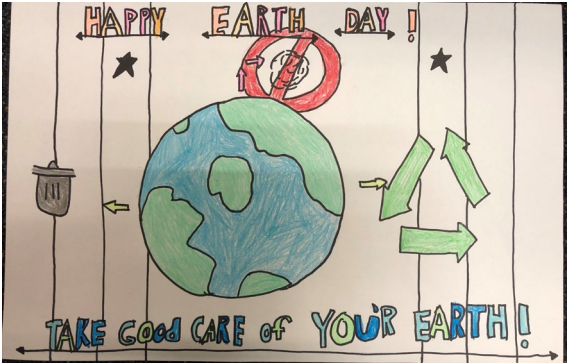 HAPPY EARTH DAY !
TAKE Good CARE of YOUR EARTH !